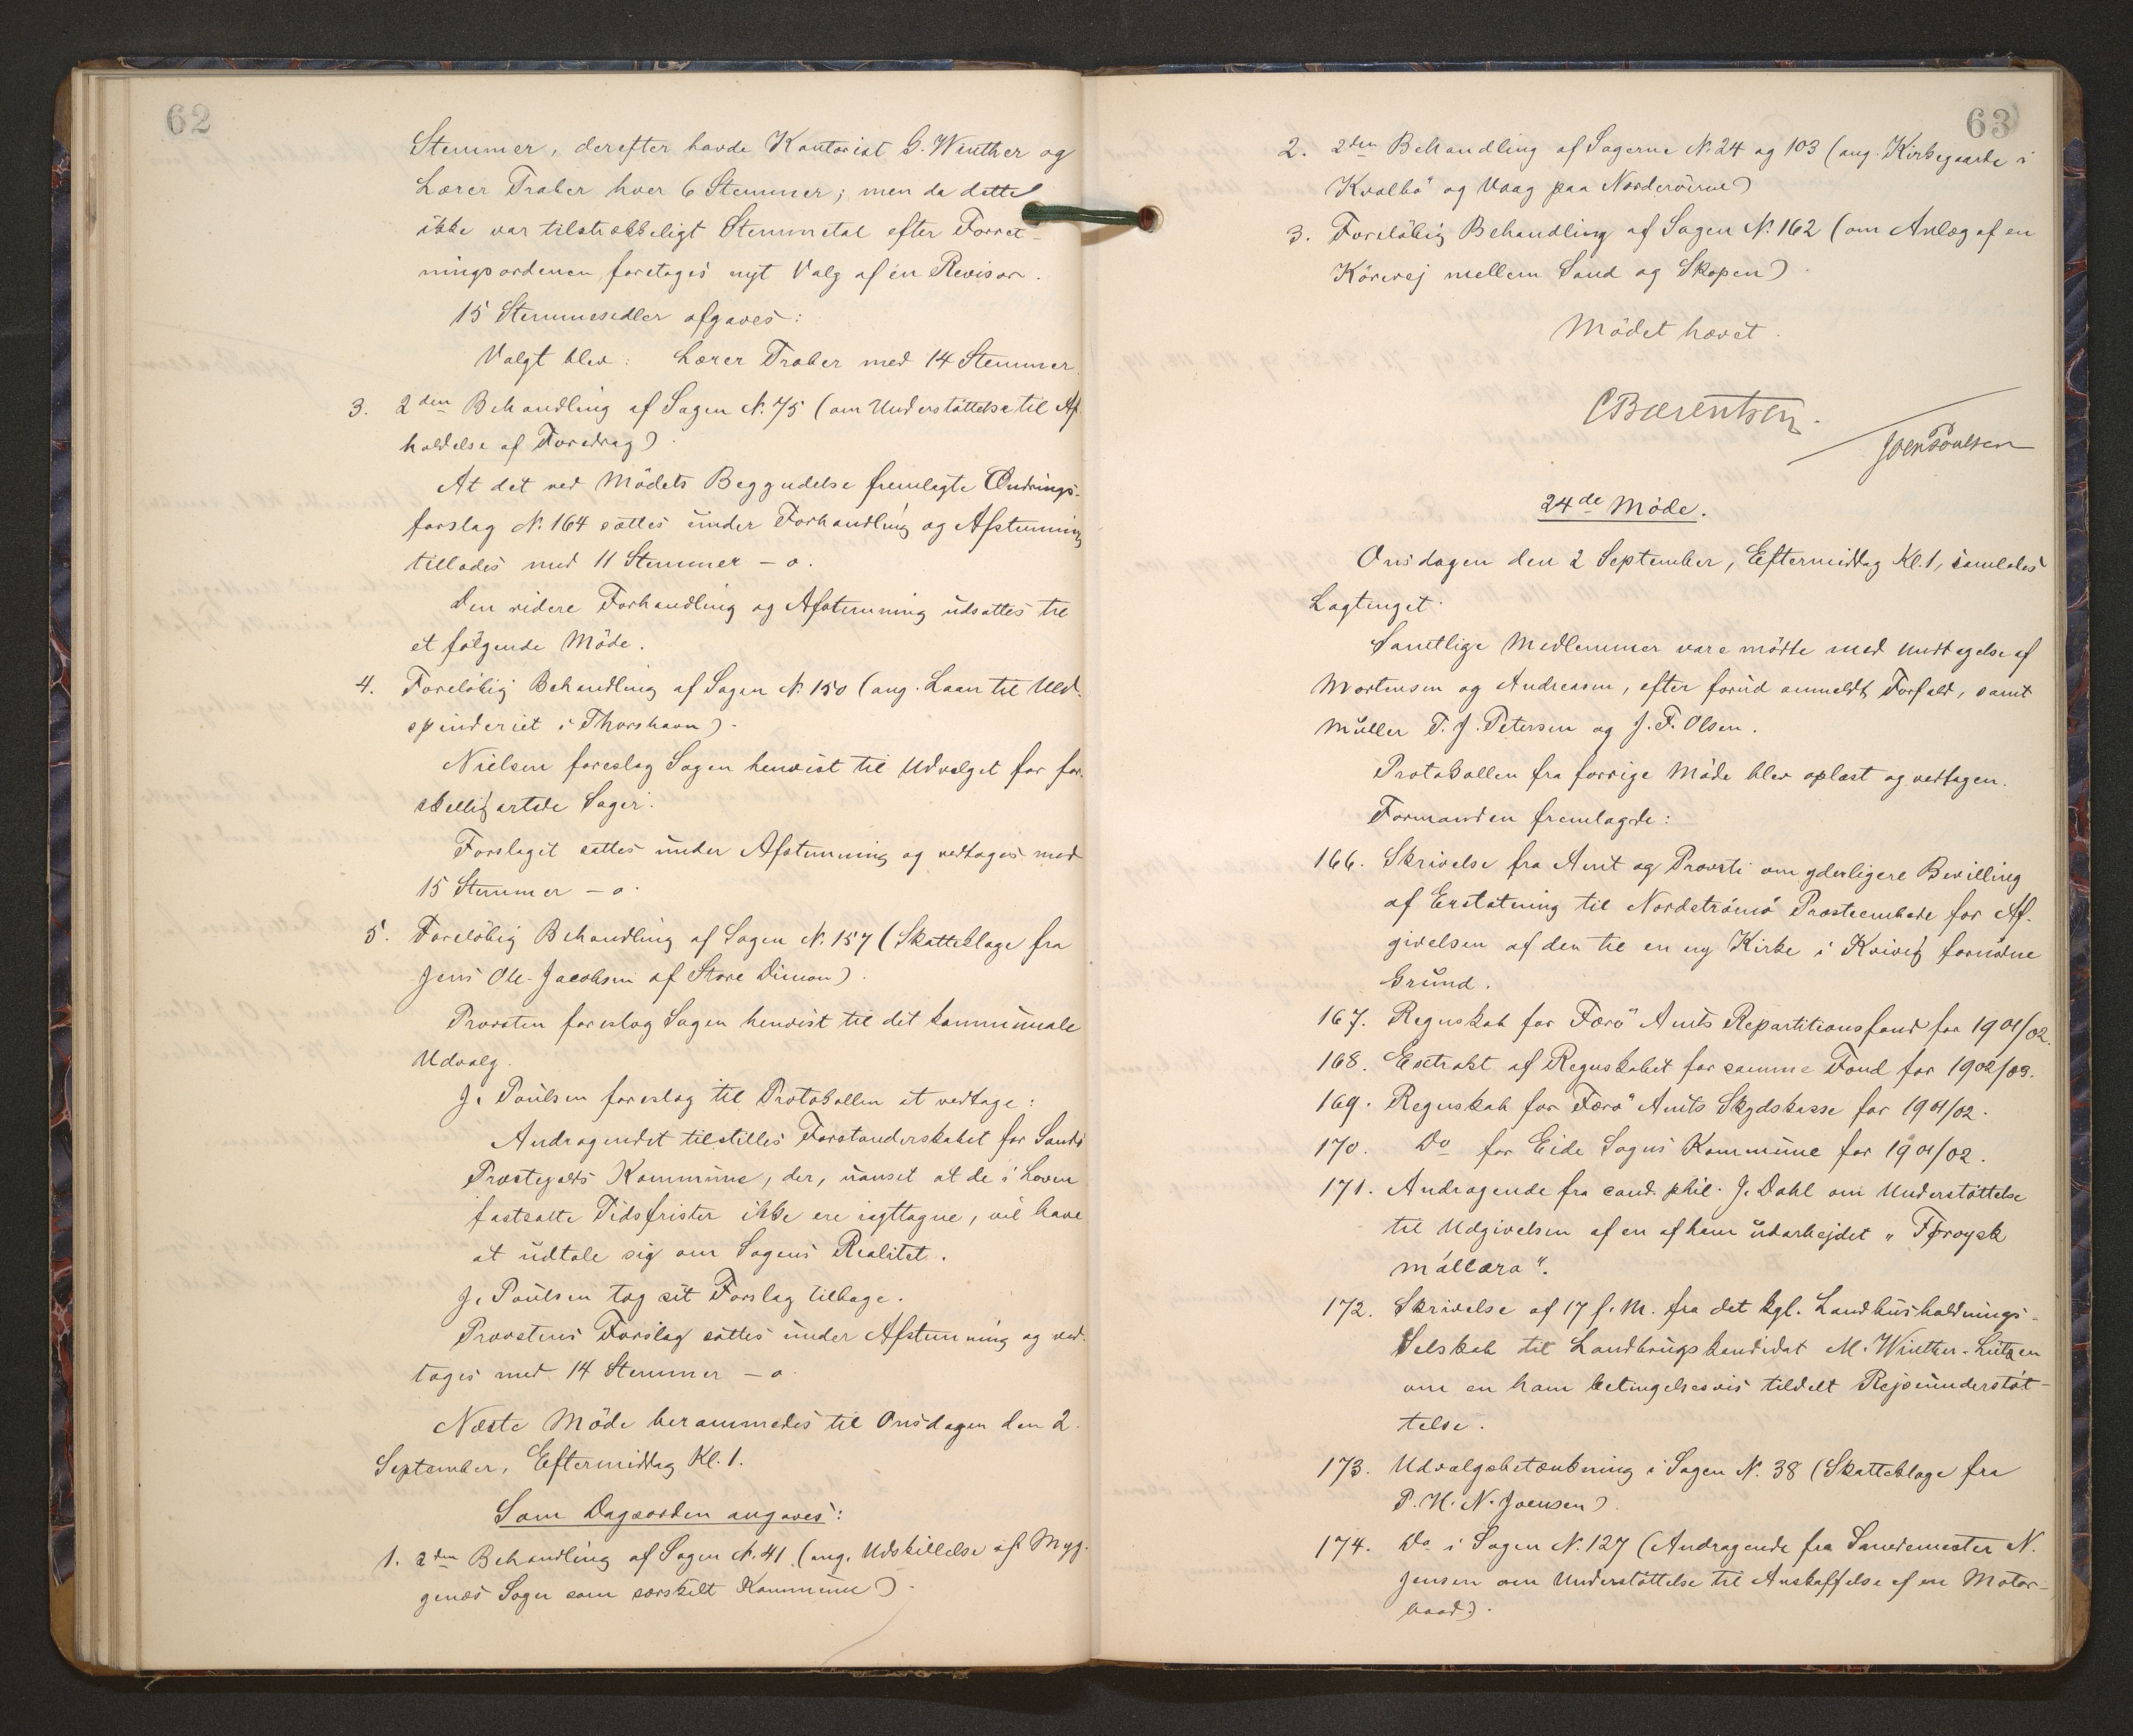 62
Stemmer, derefter havde Kontorist G. Winther og
Lærer Traber hver 6 Stemmer; men da dette
ikke var tilstrækkeligt Stemmetal efter Forret-
ningsordenen foretoges nyt Valg af én Revisor.
15 Stemmesedler afgaves:
Valgt blev: Lærer Traber med 14 Stemmer.
3. 2den Behandling af Sagen N. 75 (om Understöttelse til Af-
holdelse af Foredrag).
At det ved Mödets Begyndelse fremlagte Ændrings-
forslag N. 164 sattes under Forhandling og Afstemning
tillodes med 11 Stemmer - 0.
Den videre Forhandling og Afstemning udsattes til
et fölgende Möde.
4. Forelöbig Behandling af Sagen N. 150 (ang. Laan til Uld-
spinderiet i Thorshavn).
Nielsen foreslog Sagen henvist til Udvalget for for-
skelligartede Sager.
Forslaget sattes under Afstemning og vedtoges med
15 Stemmer - 0.
5. Forelöbig Behandling af Sagen N. 157 (Skatteklage fra
Jens Ole Jacobsen af Store Dimon).
Provsten foreslog Sagen henvist til det kommunale
Udvalg.
J. Poulsen foreslog til Protokollen at vedtage:
Andragendet tilstilles Forstanderskabet for Sands
Præstegjælds Kommune, der, uanset at de i Loven
fastsatte Tidsfrister ikke ere iagttagne, vil have
at udtale sig om Sagens Realitet.
J. Poulsen tog sit Forslag tilbage.
Provstens Forslag sattes under Afstemning og ved-
toges med 14 Stemmer - 0.
Næste Möde berammedes til Onsdagen den 2.
September, Eftermiddag Kl. 1.
Som Dagsorden angaves:
1. 2den Behandling af Sagen N. 41 (ang. Udskillelse af Myg-
genæs Sogn som særskilt Kommune).
63
2. 2den Behandling af Sagerne N. 24 og 103 (ang. Kirkegaarde i
Kvalbö og Vaag paa Norderöerne)
3. Forelöbig Behandling af Sagen N. 162 (om Anlæg af en
Körevej mellem Sand og Skopen).
Mödet hævet.
C Bærentsen.
Joen Poulsen
24de Möde.
Onsdagen den 2 September, Eftermiddag Kl. 1, samledes
Lagtinget.
Samtlige Medlemmer vare mödte med Undtagelse af
Mortensen og Andreasen, efter forud anmeldt Forfald, samt
Müller P. J. Petersen og J. F. Olsen.
Protokollen fra forrige Möde blev oplæst og vedtagen.
Formanden fremlagde:
166. Skrivelse fra Amt og Provsti om yderligere Bevilling
af Erstatning til Nordströmö Præsteembede for Af-
givelsen af den til en ny Kirke i Kvivig fornödne
Grund.
167. Regnskab for Færö Amts Repartitionsfond for 1901/02.
168. Extrakt af Regnskabet for samme Fond for 1902/03.
169. Regnskab for Færö Amts Skydskasse for 1901/02.
170. Do for Eide Sogns Kommune for 1901/02.
171. Andragende fra cand. phil. J. Dahl om Understöttelse
til Udgivelsen af en af ham udarbejdet „Føroysk
mállæra".
172. Skrivelse af 17 f. M. fra det kgl. Landhusholdnings-
Selskab til Landbrugskandidat M. Winther-Lützen
om en ham betingelsesvis tildelt Rejseunderstöt-
telse.
173. Udvalgsbetænkning i Sagen N. 38 (Skatteklage fra
P. H. N. Joensen).
174. Do i Sagen N. 127 (Andragende fra Snedmester N.
Jensen om Understöttelse til Anskaffelse af en Motor-
baad).